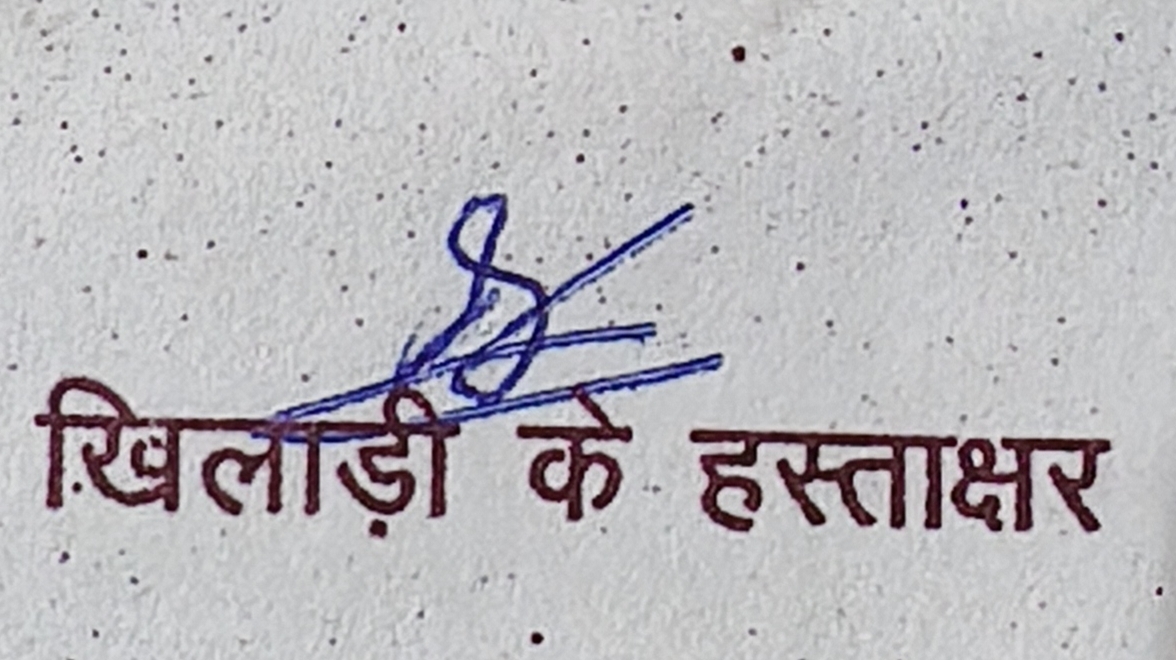 खिलाड़ी के हस्ताक्षर